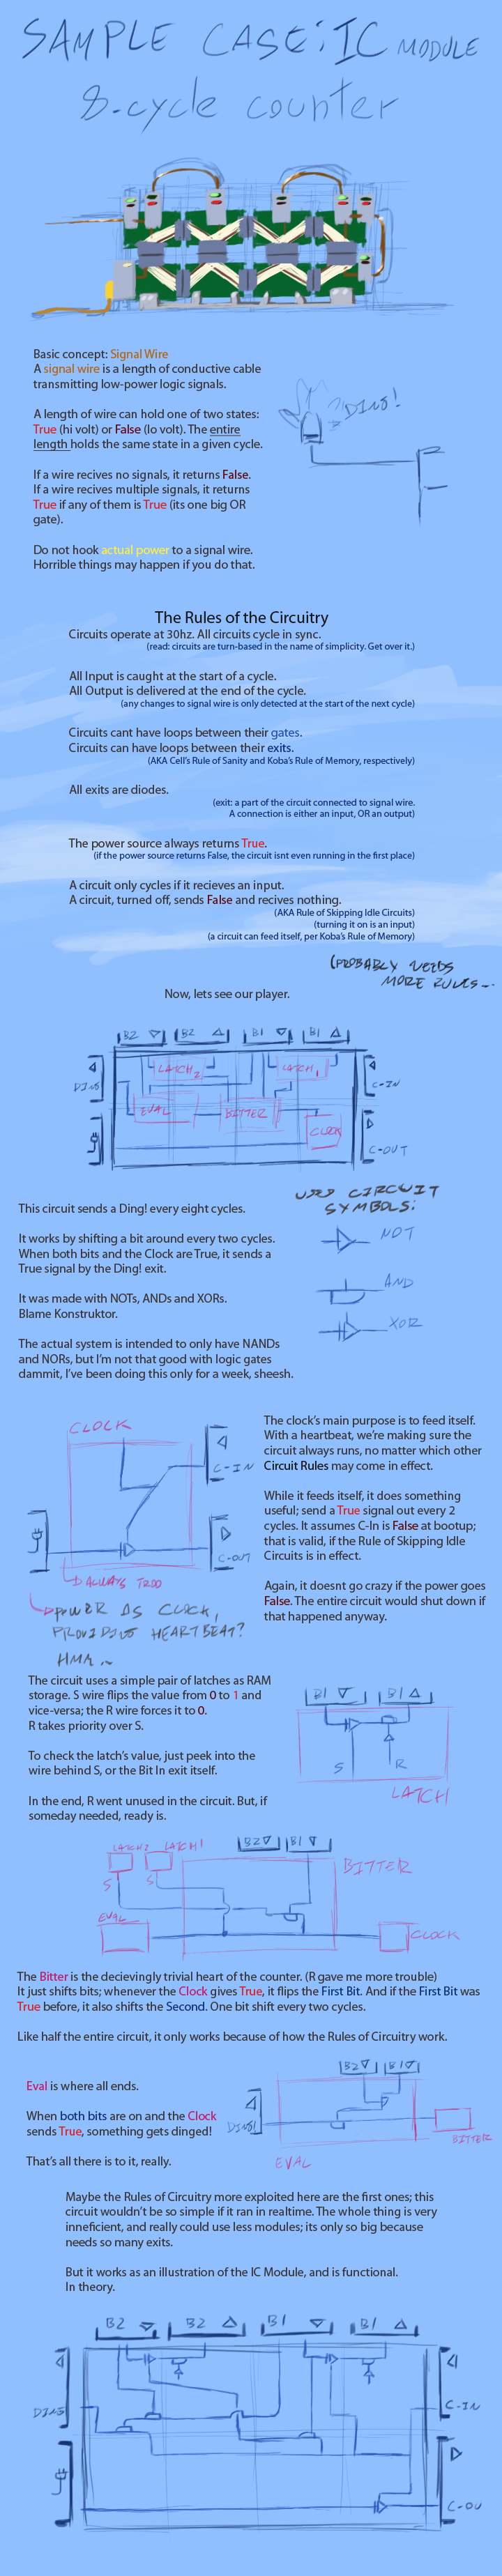 SAMPLE CASE: IC MODULE
8-cycle counter
Basic concept: Signal Wire
A signal wire is a length of conductive cable
transmitting low-power logic signals.
A length of wire can hold one of two states:
True (hi volt) or False (lo volt). The entire
length holds the same state in a given cycle.
If a wire recives no signals, it returns False.
If a wire recives multiple signals, it returns
True if any of them is True (its one big OR
gate).
Do not hook actual power to a signal wire.
Horrible things may happen if you do that.
DING!
The Rules of the Circuitry
Circuits operate at 30hz. All circuits cycle in sync.
(read: circuits are turn-based in the name of simplicity. Get over it.)
All Input is caught at the start of a cycle.
All Output is delivered at the end of the cycle.
(any changes to signal wire is only detected at the start of the next cycle)
Circuits cant have loops between their gates.
Circuits can have loops between their exits.
(AKA Cell's Rule of Sanity and Koba's Rule of Memory, respectively)
All exits are diodes.
(exit: a part of the circuit connected to signal wire.
A connection is either an input, OR an output)
The power source always returns True.
(if the power source returns False, the circuit isnt even running in the first place)
A circuit only cycles if it recieves an input.
A circuit, turned off, sends False and recives nothing.
(AKA Rule of Skipping Idle Circuits)
(turning it on is an input)
(a circuit can feed itself, per Koba's Rule of Memory)
(PROBABLY NEEDS
MORE RULES...
Now, lets see our player.
B2 B2 B1 B1
DING
LATCH2
LATCH1
C-IN
EVAL
BITTER
CLOCK
C-OUT
USED CIRCUIT
SYMBOLS:
This circuit sends a Ding! every eight cycles.
It works by shifting a bit around every two cycles.
When both bits and the Clock are True, it sends a
True signal by the Ding! exit.
NOT
It was made with NOTs, ANDs and XORs.
Blame Konstruktor.
AND
XOR
The actual system is intended to only have NANDs
and NORs, but I'm not that good with logic gates
dammit, I've been doing this only for a week, sheesh.
CLOCK
C-IN
C-OUT
The clock's main purpose is to feed itself.
With a heartbeat, we're making sure the
circuit always runs, no matter which other
Circuit Rules may come in effect.
While it feeds itself, it does something
useful; send a True signal out every 2
cycles. It assumes C-In is False at bootup;
that is valid, if the Rule of Skipping Idle
Circuits is in effect.
Again, it doesnt go crazy if the power goes
False. The entire circuit would shut down if
that happened anyway.
ALWAYS
POWER AS CLOCK,
PROVIDING HEARTBEAT?
HMM...
The circuit uses a simple pair of latches as RAM
storage. S wire flips the value from 0 to 1 and
vice-versa; the R wire forces it to 0.
R takes priority over S.
To check the latch's value, just peek into the
wire behind S, or the Bit In exit itself.
In the end, R went unused in the circuit. But, if
someday needed, ready is.
B1 B1
S R
LATCH
LATCH2 LATCH1
B2 B1
BITTER
S S
EVAL
CLOCK
The Bitter is the decievingly trivial heart of the counter. (R gave me more trouble)
It just shifts bits; whenever the Clock gives True, it flips the First Bit. And if the First Bit was
True before, it also shifts the Second. One bit shift every two cycles.
Like half the entire circuit, it only works because of how the Rules of Circuitry work.
Eval is where all ends.
When both bits are on and the Clock
sends True, something gets dinged!
That's all there is to it, really.
B2 B1
DING!
BITTER
EVAL
Maybe the Rules of Circuitry more exploited here are the first ones; this
circuit wouldn't be so simple if it ran in realtime. The whole thing is very
inneficient, and really could use less modules; its only so big because
needs so many exits.
But it works as an illustration of the IC Module, and is functional.
In theory.
B2 B2 B1 B1
DING
C-IN
C-OU